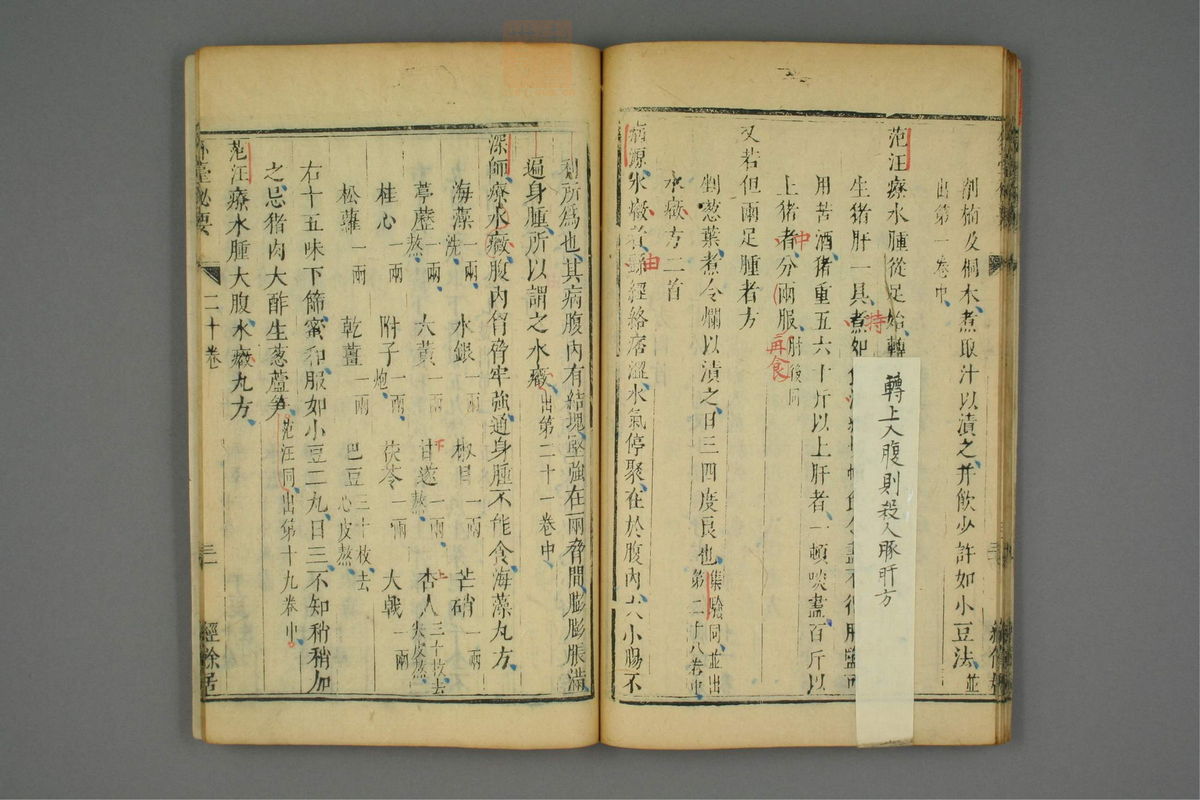 削楠及桐木煮取汁以漬之并飲少許如小豆法並
出第一卷中
范汪療水腫從足始轉
轉上入腹則殺人豚肝方
生猪肝一具煮如食
持
用苦酒猪重五六十斤以上肝者一頓啖盡百斤以
上猪者分兩服肘後同
中
再食
又若但兩足腫者方
剉葱葉煮令爛以漬之日三四度良也集驗同並出
第二十八卷中
水癥方二首
病源水癥者經絡痞澀水氣停聚在於腹內大小腸不
由
利所爲也其病腹內有結塊堅強在兩脅間膨膨脹滿
遍身腫所以謂之水癥出第二十一卷中
深師療水癥腹內胷脅牢強通身腫不能食海藻丸方
海藻一兩洗 水銀一兩 椒目一兩 芒硝一兩
葶藶一兩熬 大黃一兩 甘遂一兩熬 杏人三十枚去尖皮熬
下 上
桂心一兩 附子一兩炮 茯苓一兩 大戟一兩
松蘿一兩 乾薑一兩 巴豆三十枚去心皮熬
右十五味下篩蜜和服如小豆二丸日三不知稍稍加
之忌猪肉大酢生葱蘆笋范汪同出第十九卷中
范汪療水腫大腹水癥丸方
外臺秘要 二十卷 三 經餘居